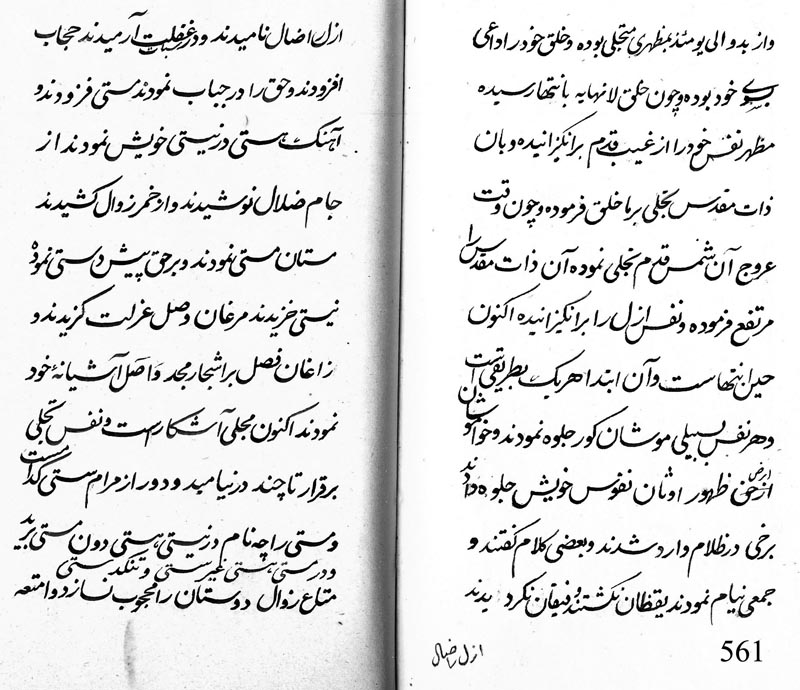 واز بدو الی یومئذ بمظهری متجلی بوده و خلق خود را داعی
بسوی خود بوده و چون خلق لانهایه بانتها رسیده
مظهر نفس خود را از غیب قدم برانگیزانیده و بان
ذات مقدس تجلی بر ما خلق فرموده و چون وقت
عروج آن شمس قدم تجلی نموده آن ذات مقدس را
مرتفع فرموده و نفس ازل را برانگیزانیده اکنون
حین انتهاست و آن ابتدا هر یک بطریقی است
و هر نفس بسبیلی موشان کور جلوه نمودند و خواموشان
از حق ظهور اوثان نفوس خویش جلوه دادند
ارض
برخی در ظلام وارد شدند و بعضی کلام گفتند و
جمعی نیام نمودند یقظان نگشتند و فیقان نگردیدند
ازل اضال
561
ازل اضال نامیدند و در غفلت آرمیدند حجاب
افزودند و حق را در حباب نمودند مستی فزودند و
آهنک هستی در نیستی خویش نمودند از
جام ضلال نوشیدند و از خمر زوال کشیدند
مستان مستی نمودند و بر حق پیش دستی نموده
نیستی خریدند مرغان وصل عزلت گزیدند و
زاغان فصل بر اشجار مجد و اصل آشیانهٔ خود
نمودند اکنون مجلی آشکار است و نفس تجلی
برقرار تا چند در نیامید و دور از مرام مستی کدامست
و مستی را چه نام در نیستی هستی دون مستی برید
و در مستی هستی غیر مستی و تنگدستی
متاع زوال دوستان را محجوب نسازد و امتعه